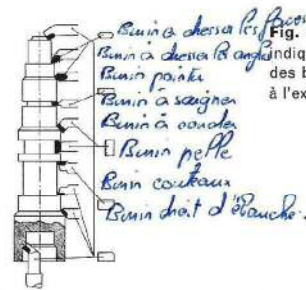 Burin à dresser les faces
Burin à dresser les angles
Burin pointu
Burin à saigner
Burin à
Burin pelle
Burin couteaux
Burin droit d'ébauche.
Fig.
indiq
des b
à l'ex